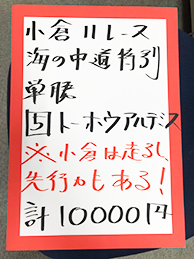 小倉11レース
海の中道特別
単勝
5トーホウアルテミス
※小倉は走るし
先行力もある!
計10000円